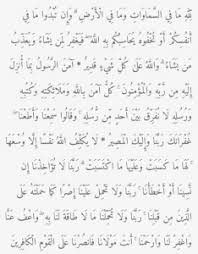 لِلَّهِ مَا فِي السَّمَاوَاتِ وَمَا فِي الْأَرْضِ * وَإِن تُبْدُوا مَا فِي
أَنفُسِكُمْ أَوْ تُخْفُوهُ يُحَاسِبْكُم بِهِ اللَّهُ * فَيَغْفِرُ لِمَن يَشَاءُ وَيُعَذِّبُ
مَن يَشَاءُ * وَاللَّهُ عَلَىٰ كُلِّ شَيْءٍ قَدِيرٌ * آمَنَ الرَّسُولُ بِمَا أُنزِلَ
إِلَيْهِ مِن رَّبِّهِ وَالْمُؤْمِنُونَ * كُلٌّ آمَنَ بِاللَّهِ وَمَلَائِكَتِهِ وَكُتُبِهِ
وَرُسُلِهِ لَا نُفَرِّقُ بَيْنَ أَحَدٍ مِّن رُّسُلِهِ * وَقَالُوا سَمِعْنَا وَأَطَعْنَا *
غُفْرَانَكَ رَبَّنَا وَإِلَيْكَ الْمَصِيرُ * لَا يُكَلِّفُ اللَّهُ نَفْسًا إِلَّا وُسْعَهَا
* لَهَا مَا كَسَبَتْ وَعَلَيْهَا مَا اكْتَسَبَتْ * رَبَّنَا لَا تُؤَاخِذْنَا إِن
نَّسِينَا أَوْ أَخْطَأْنَا * رَبَّنَا وَلَا تَحْمِلْ عَلَيْنَا إِصْرًا كَمَا حَمَلْتَهُ عَلَى
الَّذِينَ مِن قَبْلِنَا * رَبَّنَا وَلَا تُحَمِّلْنَا مَا لَا طَاقَةَ لَنَا بِهِ * وَاعْفُ عَنَّا
وَاغْفِرْ لَنَا وَارْحَمْنَا * أَنتَ مَوْلَانَا فَانصُرْنَا عَلَى الْقَوْمِ الْكَافِرِينَ